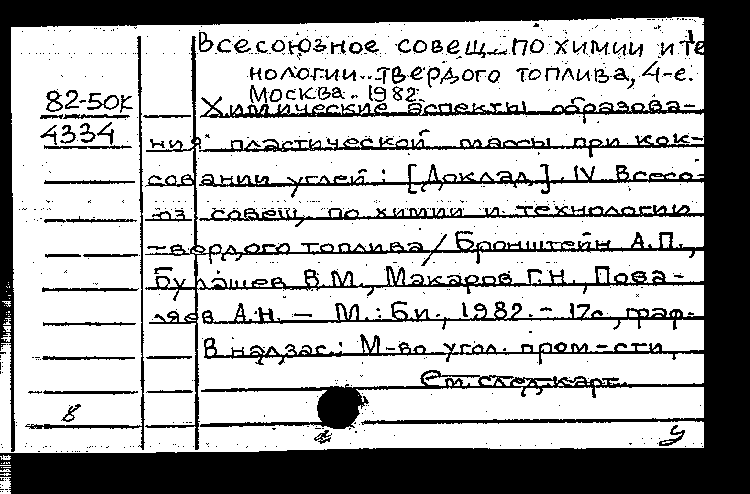 Всесоюзное совещ. по химии и те
нологии твердого топлива, 4-е.
Москва. 1982
82-50К
4334
Химические аспекты образова-
ния пластической массы при кок-
совании углей: [Доклад]. IV Всесо-
юз совещ. по химии и технологии
твердого топлива / Бронштейн А.П.,
Булашев В.М., Макаров Г.Н., Пова-
ляев А.Н. — М.: Б.и., 1982. - 17с, граф.
В надзаг.: М-во угол. пром-сти,
См. след. карт.
в
У